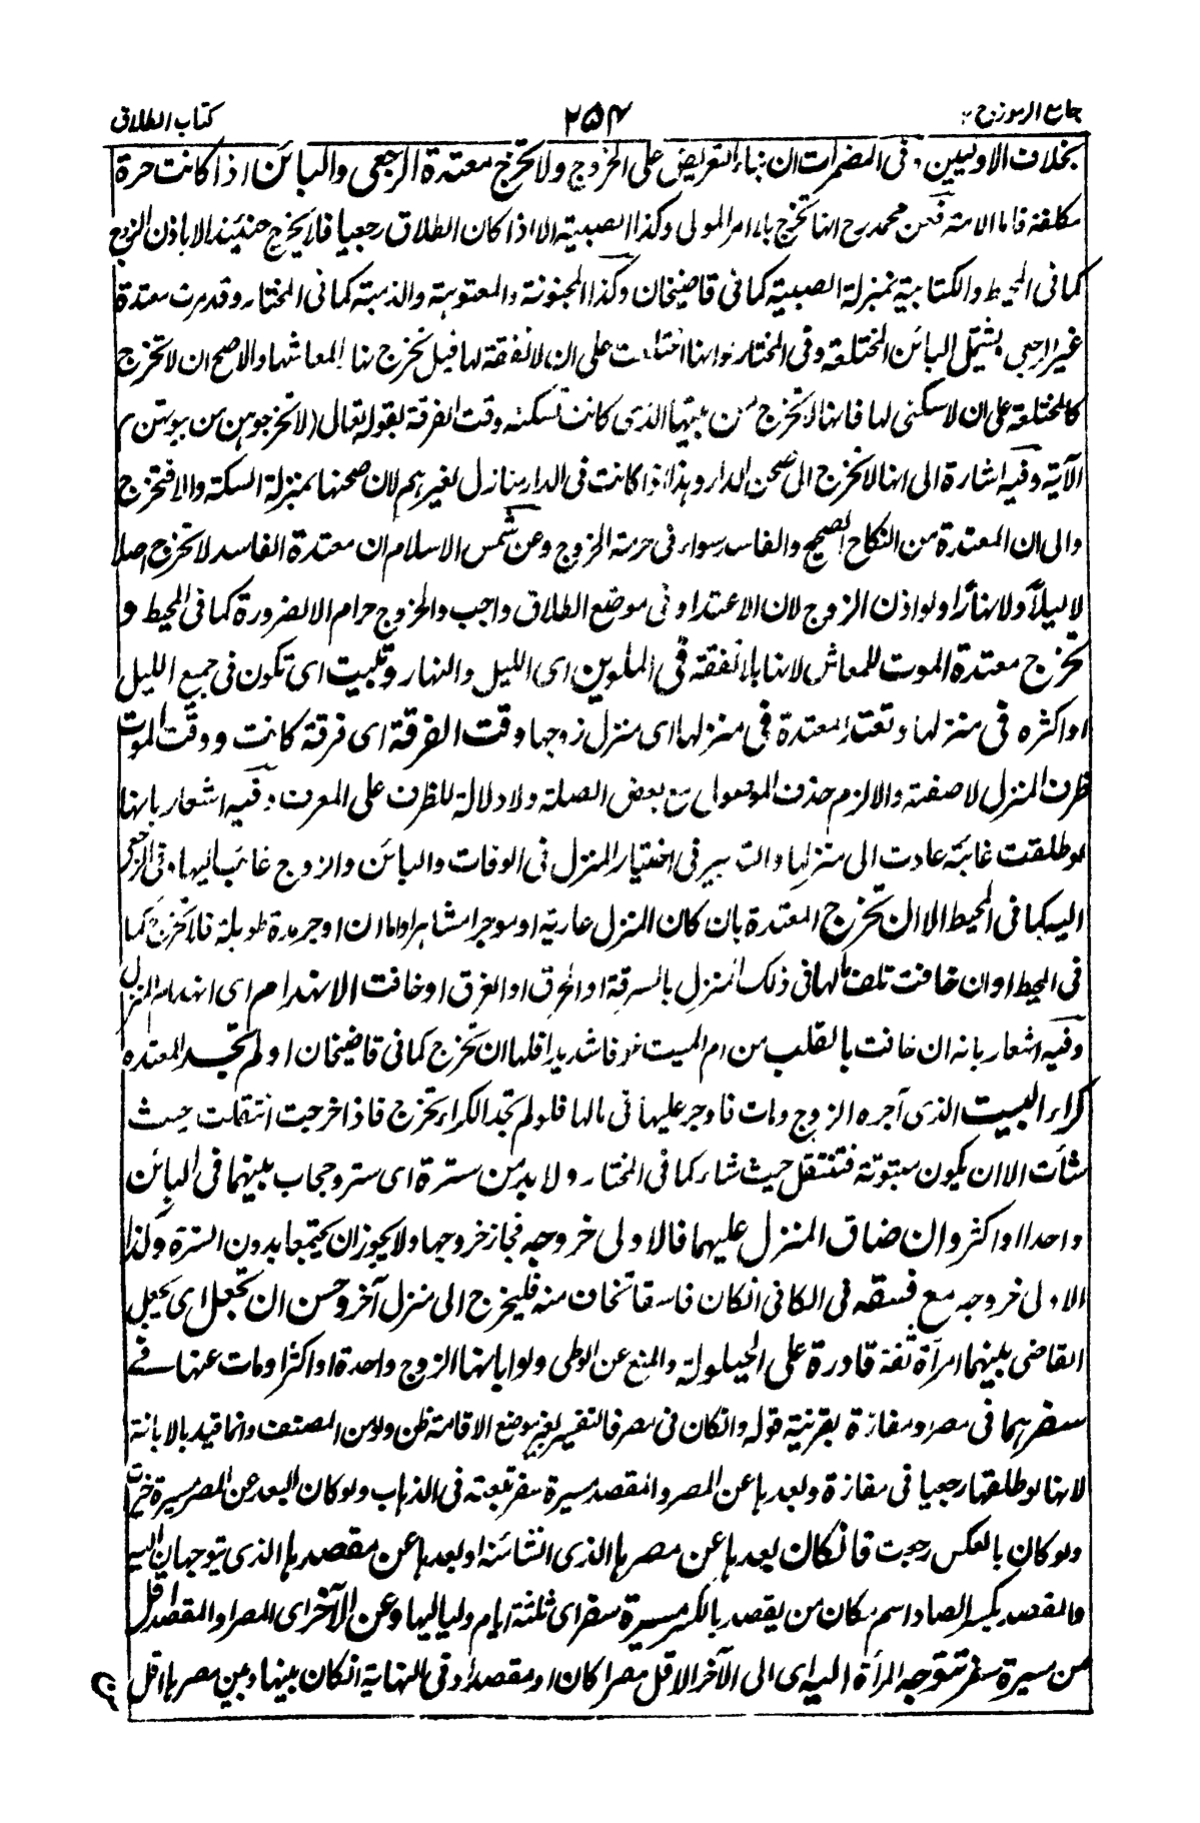 جامع الرموز ج ٢
٢٥٤
كتاب الطلاق
بخلاف الاوليين وفى المضمرات ان بناء التعريض على الخروج ولا تخرج معتدة الرجعى والبائن اذا كانت حرة
مكلفة فاما الامة فعن محمد رح انها تخرج بلا امر المولى وكذا الصبية الا اذا كان الطلاق رجعيا فلا يخرج حينئذ الا باذن الزوج
كما فى المحيط والكتابية بمنزلة الصبية كما فى قاضيخان وكذا المجنونة والمعتوهة والذمية كما فى المختار وقد مرت معتدة
غير الرجعى يشتمل البائن المختلعة وفى المختار لو انها اختلعت على ان لا نفقة لها قيل تخرج نهارا لمعاشها والاصح ان لا تخرج
كالمختلعة على ان لا سكنى لها فانها لا تخرج من بيتها الذى كانت تسكنه وقت الفرقة لقوله تعالى (لا تخرجوهن من بيوتهن)
الآية وفيه اشارة الى انها لا تخرج الى صحن الدار وهذا اذا كانت فى الدار منازل لغيرهم لان صحنها بمنزلة السكة والا فتخرج
والى ان المعتدة من النكاح الصحيح والفاسد سواء فى حرمة الخروج وعن شمس الاسلام ان معتدة الفاسد لا تخرج اصلا
لا ليلاً ولا نهاراً ولو اذن الزوج لان الاعتداد فى موضع الطلاق واجب والخروج حرام الا لضرورة كما فى المحيط و
تخرج معتدة الموت للمعاش لانها بلا نفقة فى الملوين اى الليل والنهار وتبيت اى تكون فى جميع الليل
او اكثره فى منزلها وتعتد المعتدة فى منزلها اى منزل زوجها وقت الفرقة اى فرقة كانت ووقت الموت
ظرف المنزل لا صفته والا لزم حذف الموصول مع بعض الصلة ولا دلالة للظرف على المعرف وفيه اشعار بانها
لو طلقت غائبة عادت الى منزلها والتدبير فى اختيار المنزل فى الوفات والبائن والزوج غائب اليها وفى الرجعى
اليه كما فى المحيط الا ان تخرج المعتدة بان كان المنزل عارية او موجرا مشاهرا واما ان اوجر مدة طويلة فلا تخرج كما
فى المحيط او ان خافت تلف مالها فى ذلك المنزل بالسرقة او الحرق او الغرق او خافت الانهدام اى انهدام المنزل
وفيه اشعار بانه ان خافت بالقلب من امر الميت خوفا شديدا فلها ان تخرج كما فى قاضيخان او لم تجد المعتده
كراء البيت الذى آجره الزوج ومات فاوجر عليها فى مالها فلو لم تجد الكراء تخرج فاذا خرجت انتقلت حيث
شأت الا ان يكون مبتوتة فتنتقل حيث شاء كما فى المختار ولا بد من سترة اى ستر وحجاب بينهما فى البائن
واحدا او اكثر وان ضاق المنزل عليهما فالاولى خروجه فجاز خروجها ولا يجوز ان يجتمعا بدون السترة وكذا
الاولى خروجه مع فسقه فى الكافى ان كان فاسقا تخاف منه فليخرج الى منزل آخر وحسن ان تجعل اى يجعل
القاضى بينهما امرأة ثقة قادرة على الحيلولة والمنع عن الوطى ولو ابانها الزوج واحدة او اكثر او مات عنها فى
سفر هما فى مصر ومفازة بقرينة قوله وان كان فى مصر فالتفسير بغير موضع الاقامة ظن ولو من المصنف وانما قيد بالابانة
لانها لو طلقها رجعيا فى مفازة وبعدها عن المصر والمقصد مسيرة سفر تبعته فى الذهاب ولو كان البعد عن المصر مسيرة خيرت
ولو كان بالعكس رجعت فان كان بعدها عن مصرها الذى انشائته او بعدها عن مقصدها الذى يتوجهان اليه
فالمقصد بكسر الصاد اسم مكان من يقصد بالكسر مسيرة سفر اى ثلثة ايام ولياليها وعن الآخر اى المصر او المقصد اقل
من مسيرة سفر تتوجه المرأة اليه اى الى الآخر الاقل مصرا كان او مقصدا وفى النهاية ان كان بينها وبين مصرها اقل